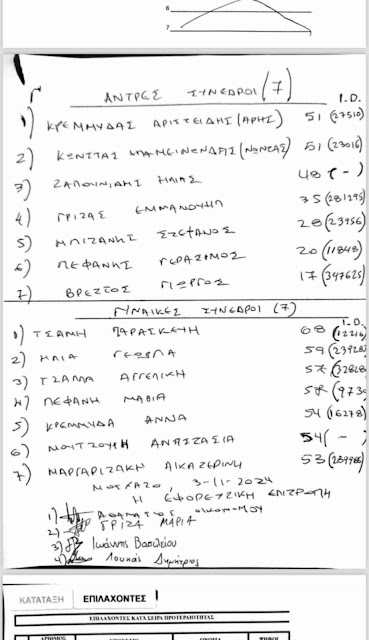 6
7
ΑΝΤΡΕΣ ΣΥΝΕΔΡΟΙ (7)
I.D.
1) ΚΡΕΜΜΥΔΑΣ ΑΡΙΣΤΕΙΔΗΣ (ΑΡΗΣ) 51 (27510)
2) ΚΩΝΣΤΑΣ ΕΠΑΜΕΙΝΩΝΔΑΣ (ΝΩΝΤΑΣ) 51 (23016)
3) ΖΑΠΟΥΝΙΔΗΣ ΗΛΙΑΣ 48 ( - )
4) ΓΡΙΖΑΣ ΕΜΜΑΝΟΥΗΛ 35 (281295)
5) ΜΠΙΖΑΝΗΣ ΣΤΕΦΑΝΟΣ 28 (23956)
6) ΠΕΦΑΝΗΣ ΓΕΡΑΣΙΜΟΣ 20 (11848)
7) ΒΡΕΤΤΟΣ ΓΙΩΡΓΟΣ 17 (347625)
ΓΥΝΑΙΚΕΣ ΣΥΝΕΔΡΟΙ (7)
I.D.
1) ΤΣΑΜΗ ΠΑΡΑΣΚΕΥΗ 68 (12216)
2) ΗΛΙΑ ΓΕΩΡΓΙΑ 59 (23928)
3) ΤΖΑΛΛΑ ΑΓΓΕΛΙΚΗ 57
4) ΠΕΦΑΝΗ ΜΑΒΙΑ (973
5) ΚΡΕΜΜΥΔΑ ΑΝΝΑ 54 (16278)
6) ΜΟΥΤΖΟΥΡΗ ΑΝΑΣΤΑΣΙΑ 54 ( - )
7) ΜΑΡΓΑΡΙΤΑΚΗ ΑΙΚΑΤΕΡΙΝΗ 53
ΜΟΣΧΑΤΟ, 3-11-2024
Η ΕΦΟΡΕΥΤΙΚΗ ΕΠΙΤΡΟΠΗ
1) ΑΘΑΝΑΣΙΟΣ ΟΙΚΟΝΟΜΟΥ
2) ΓΡΙΖΑ ΜΑΡΙΑ
3) Ιωάννης Βασιλείου
4) Λουκάς Δημήτριος
ΚΑΤΑΤΑΞΗ ΕΠΙΛΑΧΟΝΤΕΣ
ΕΠΙΛΑΧΟΝΤΕΣ ΚΑΤΑ ΣΕΙΡΑ ΠΡΟΤΕΡΑΙΟΤΗΤΑΣ
ΑΡΙΘΜΟΣ ΕΠΩΝΥΜΟ ΟΝΟΜΑ ΨΗΦΟΙ